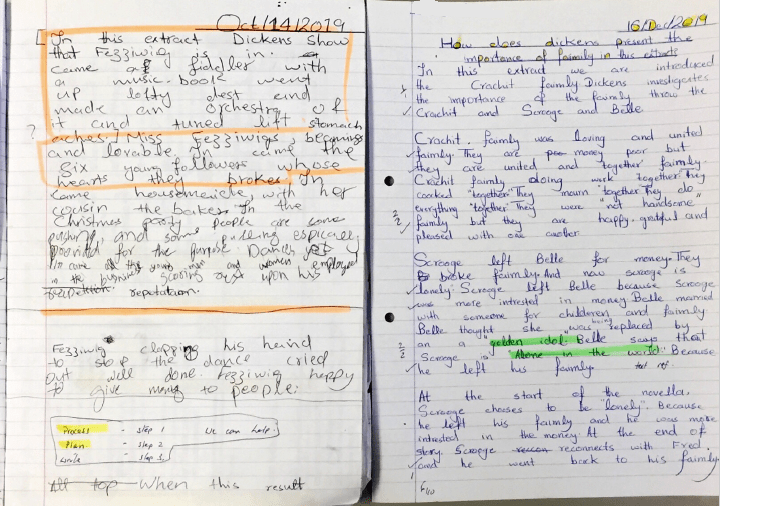 Oct/14/2019
In this extract Dickens show
that Fezziwig is in.
came a fiddler with
a music-book went
up lofty dest and
made an orchestra of
it and tuned lift stomach
? aches/Miss Fezziwigs, beaming
and lovable In came the
Six young followers whose
hearts they broke. In
came housemaide, with her
cousin the baker. In the
Christmas party people are some
pushing and some pulling espically
provided for the purpose. Dances
In came all the young men and women employed
in the business upon his
repetation. reputation.
Fezziwig clapping his haind
to stop the dance cried
out well done. Fezziwig happy
to give money to people.
Process - step 1 we can help.
Plan - step 2
write - step 3
All top When this result
16/Dec/2019
How does dickens present the
importance of faimily in this extracts
In this extract we are introduced
the Crachit faimly. Dickens investigates
the importance of the faimly throw the
Crachit and Scrooge and Belle
Crachit. faimly was loving and united
faimly. They are money poor but
they are united and together faimly.
Crachit faimly doing work together they
cooked "together" They mourn "together" They do
everything "together" They were "not handsome"
faimly but they are happy. gretful and
pleased with one another
Scrooge left Belle for money. They
broke faimly. And now scrooge is
lonely. Scrooge left Belle because Scrooge
was more intrested in money. Belle married
with someone for children and faimly
Belle thought she was being replaced by
an a "golden idol". Belle says that
Scrooge is "Alone in the world". Because
he left his faimly.
At the start of the novella,
Scrooge chooses to be "lonely". Because
he left his faimly and he was more
intrested in the money. At the end of
story. Scrooge reconnects with Fred.
and he went back to his faimly